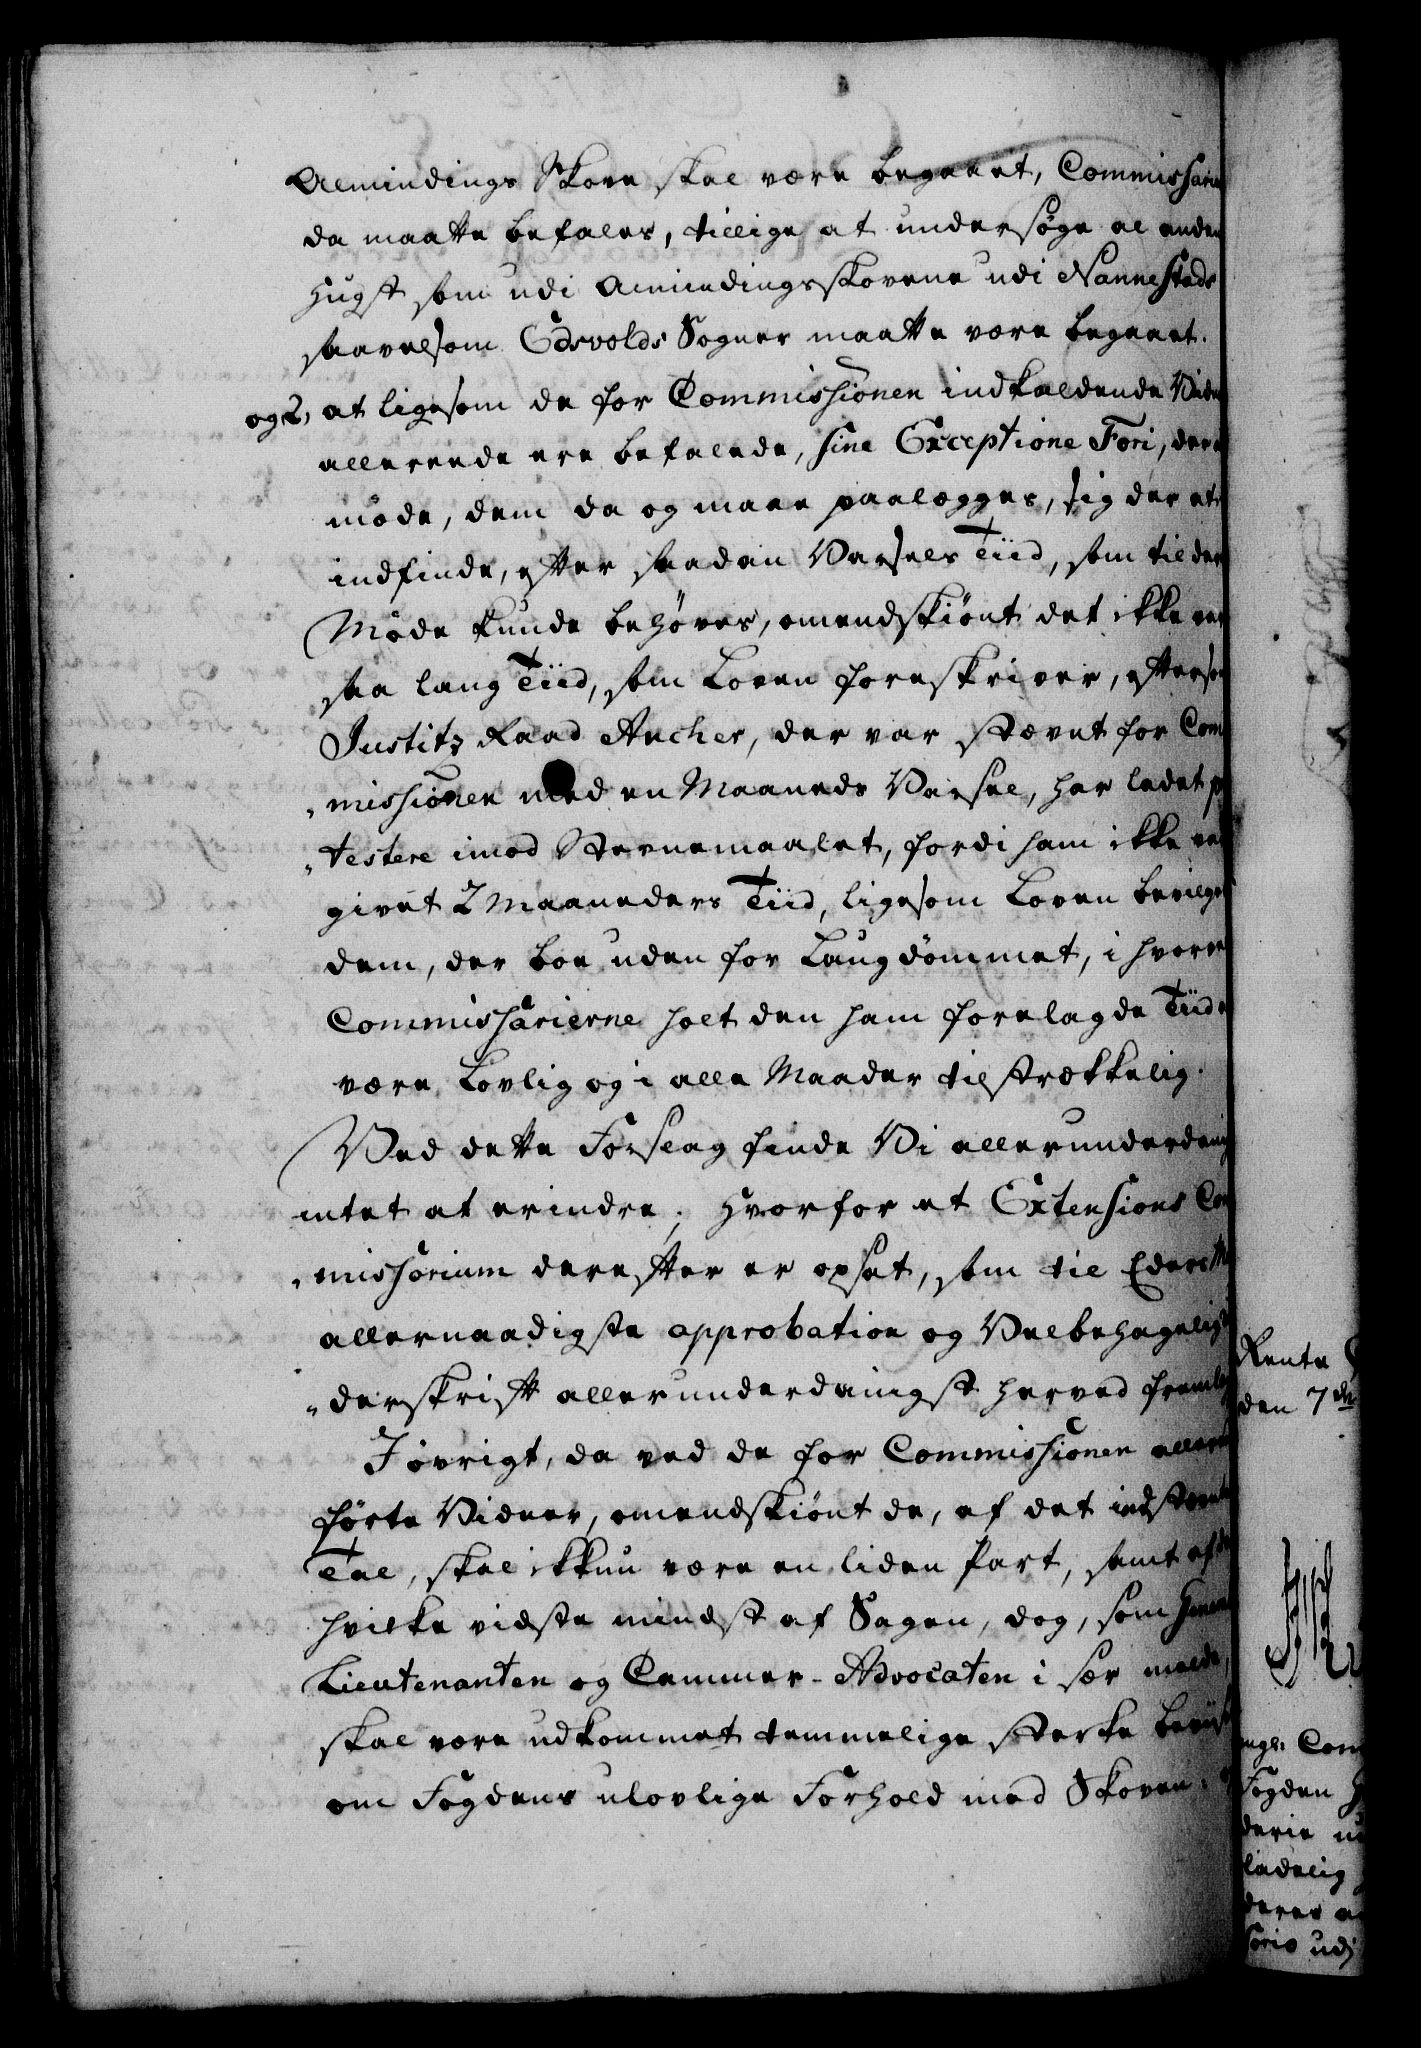 Almindings Skove skal være begaaet, Commissarier
da maatte befales, tillige at undersøge al anden
Hugst som udi Almindingsskovene udi Nannestads
saavelsom Edsvolds Sogner maatte være begaaet.
og 2, at ligesom de for Commissionen indkaldende Vidner
allereede ere befalede, sine Exceptione Fori, der at
møde, dem da og maae paalægges, sig der at
indfinde, efter saadan Varsels Tiid, som til deres
Møde kunde behøves, omendskiønt det ikke var
saa lang Tiid, som Loven foreskriver, eftersom
Justitz Raad Ancher, der var stævnt for Com
„missionen med en Maaneds Varsel, har ladet pro
„testere imod Stevnemaalet, fordi ham ikke var
givet 2 Maaneders Tiid, ligesom Loven bevilger
dem, der boe uden for Laugdömmet, i hvorvel
Commissarierne holt den ham forelagde Tiid at
være Lovlig og i alle Maader tilstrækkelig.
Ved dette Forslag finde Vi allerunderdanigst
intet at erindre; hvorfor et Extensions Com
„missorium derefter er opsat, som til Eders Mayts
allernaadigste approbation og Velbehagelig Un
„derskrift allerunderdanigst herved fremlegges
I øvrigt, da ved de for Commissionen allereede
førte Vidner, omendskiønt de, af det indstevnte
Tal, skal ikkun være en liden Part, samt af dem
hvilke vidste mindst af Sagen, dog, som General
Lieutenanten og Cammer-Advocaten i sær melde,
skal være udkommet temmelige sterke Beviis
om Fogdens ulovlige Forhold med Skoven
Rente
den 7de
Com
Fogden
derie
ladelig
deres
sorio udj